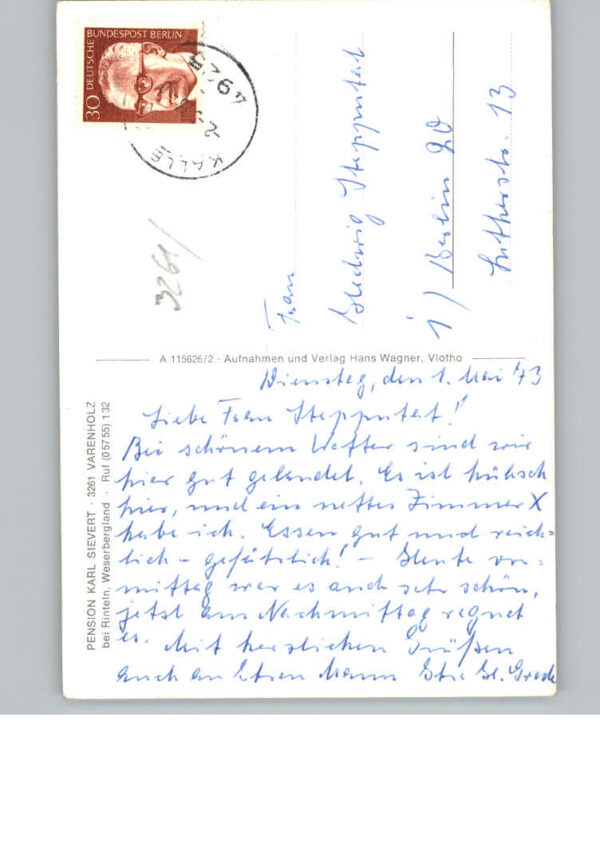 DEUTSCHE BUNDESPOST BERLIN
30
4925 KALLE
3261/
Frau
Hedwig Stepputat
1) Berlin 20
Lutherstr. 13
A 115626/2 · Aufnahmen und Verlag Hans Wagner, Vlotho
PENSION KARL SIEVERT · 3261 VARENHOLZ
bei Rinteln, Weserbergland · Ruf (05755) 132
Dienstag, den 1. Mai 73
Liebe Frau Stepputat!
Bei schönem Wetter sind wir
hier gut gelandet. Es ist hübsch
hier, und ein nettes Zimmer X
habe ich. Essen gut und reich-
lich - gefährlich! - Heute vor-
mittag war es auch sehr schön,
jetzt am Nachmittag regnet
es. Mit herzlichen Grüßen
auch an Ihren Mann Ihre